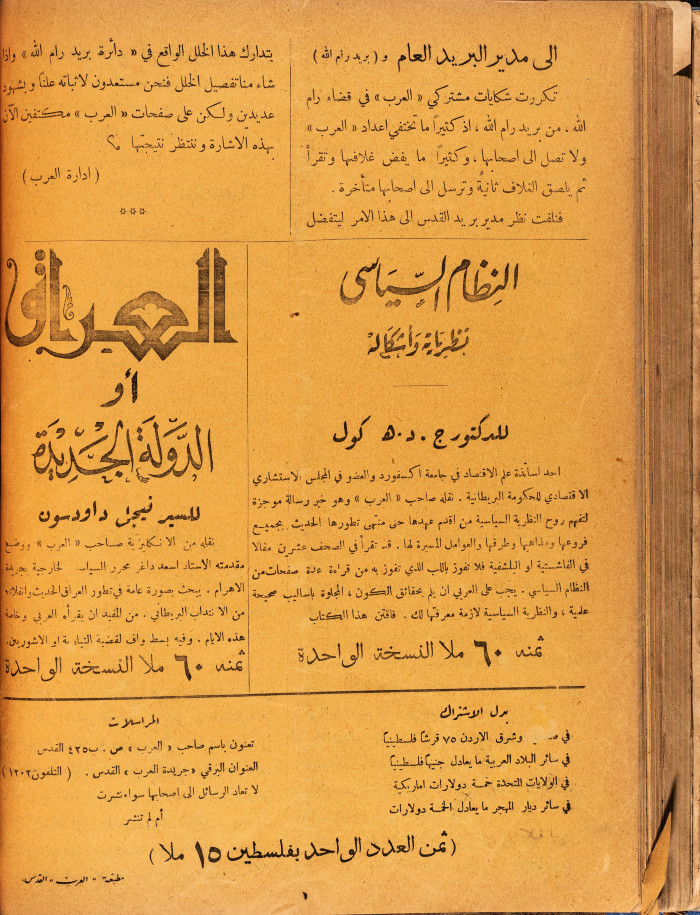 الى مدير البريد العام و ( بريد رام الله )
تكررت شكايات مشتركي « العرب » في قضاء رام
الله ، من بريد رام الله ، اذ كثيراً ما تختفي اعداد « العرب »
ولا تصل الى اصحابها ، وكثيراً ما يفض غلافها وتقرأ
ثم يلصق الغلاف ثانيةً وترسل الى اصحابها متأخرة .
فنلفت نظر مدير بريد القدس الى هذا الامر ليتفضل
بتدارك هذا الخلل الواقع في « دائرة بريد رام الله » واذا
شاء منا تفصيل الخلل فنحن مستعدون لاثباته علناً وبشهود
عديدين ولكن على صفحات « العرب » مكتفين الآن
بهذه الاشارة وننتظر نتيجتها ؟
( ادارة العرب )
***
النظام السياسي
نظرياته وأشكاله
للدكتور ج . د . ه كول
احد اساتذة علم الاقتصاد في جامعة اكسفورد والعضو في المجلس الاستشاري
الاقتصادي للحكومة البريطانية . نقله صاحب « العرب » وهو خير رسالة موجزة
لتفهم روح النظرية السياسية من اقدم عهدها حتى منتهى تطورها الحديث بجميع
فروعها ومذاهبها وطرقها والعوامل المسيرة لها . قد تقرأ في الصحف عشرين مقالا
في الفاشستية او البلشفية فلا تفوز باللب الذي تفوز به من قراءة عدة صفحات من
النظام السياسي . يجب على العربي ان يلم بحقائق الكون ، المجلوة باساليب صحيحة
علمية ، والنظرية السياسية لازمة معرفتها لك . فاقتن هذا الكتاب
ثمنه ٦٠ ملا النسخة الواحدة
العراق
أو
الدولة الجديدة
للسير نيجل داودسون
نقله من الانكليزية صاحب « العرب » ووضع
مقدمته الاستاذ اسعد داغر محرر السياسة الخارجية بجريدة
الاهرام . يبحث بصورة عامة في تطور العراق الحديث وانفلاته
من الانتداب البريطاني . من المفيد ان يقرأه العربي وخاصة
هذه الايام . وفيه بسط واف لقضية التيارية او الاشوريين .
ثمنه ٦٠ ملا النسخة الواحدة
بدل الاشتراك
في وشرق الاردن ٧٥ قرشاً فلسطينياً
في سائر البلاد العربية ما يعادل جنيهاً فلسطينياً
في الولايات المتحدة خمسة دولارات اماريكية
في سائر ديار المهجر ما يعادل الخمسة دولارات
المراسلات
تعنون باسم صاحب « العرب » ص . ب ٤٢٥ القدس
العنوان البرقي « جريدة العرب » القدس . ( التلفون ١٢٠٢ )
لا تعاد الرسائل الى اصحابها سواء نشرت
أم لم تنشر
( ثمن العدد الواحد بفلسطين ١٥ ملا )
مطبعة « العرب » القدس
١